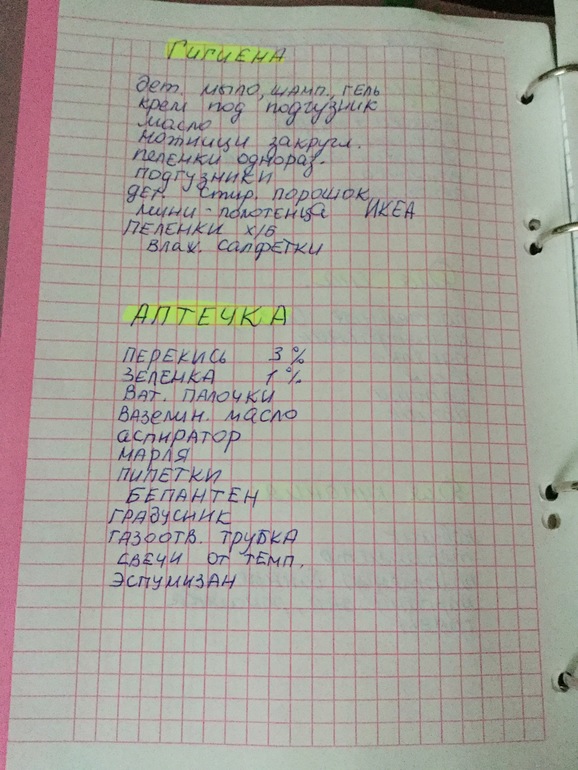 Гигиена
дет. мыло, шамп., гель
крем под подгузник
масло
ножници закругл.
пеленки однораз.
подгузники
дет. стир. порошок
мини-полотенца ИКЕА
пеленки х/б
влаж. салфетки
АПТЕЧКА
ПЕРЕКИСЬ 3%
ЗЕЛЕНКА 1%
ВАТ. ПАЛОЧКИ
ВАЗЕЛИН. МАСЛО
АСПИРАТОР
МАРЛЯ
ПИПЕТКИ
БЕПАНТЕН
ГРАДУСНИК
ГАЗООТВ. ТРУБКА
СВЕЧИ ОТ ТЕМП.
ЭСПУМИЗАН